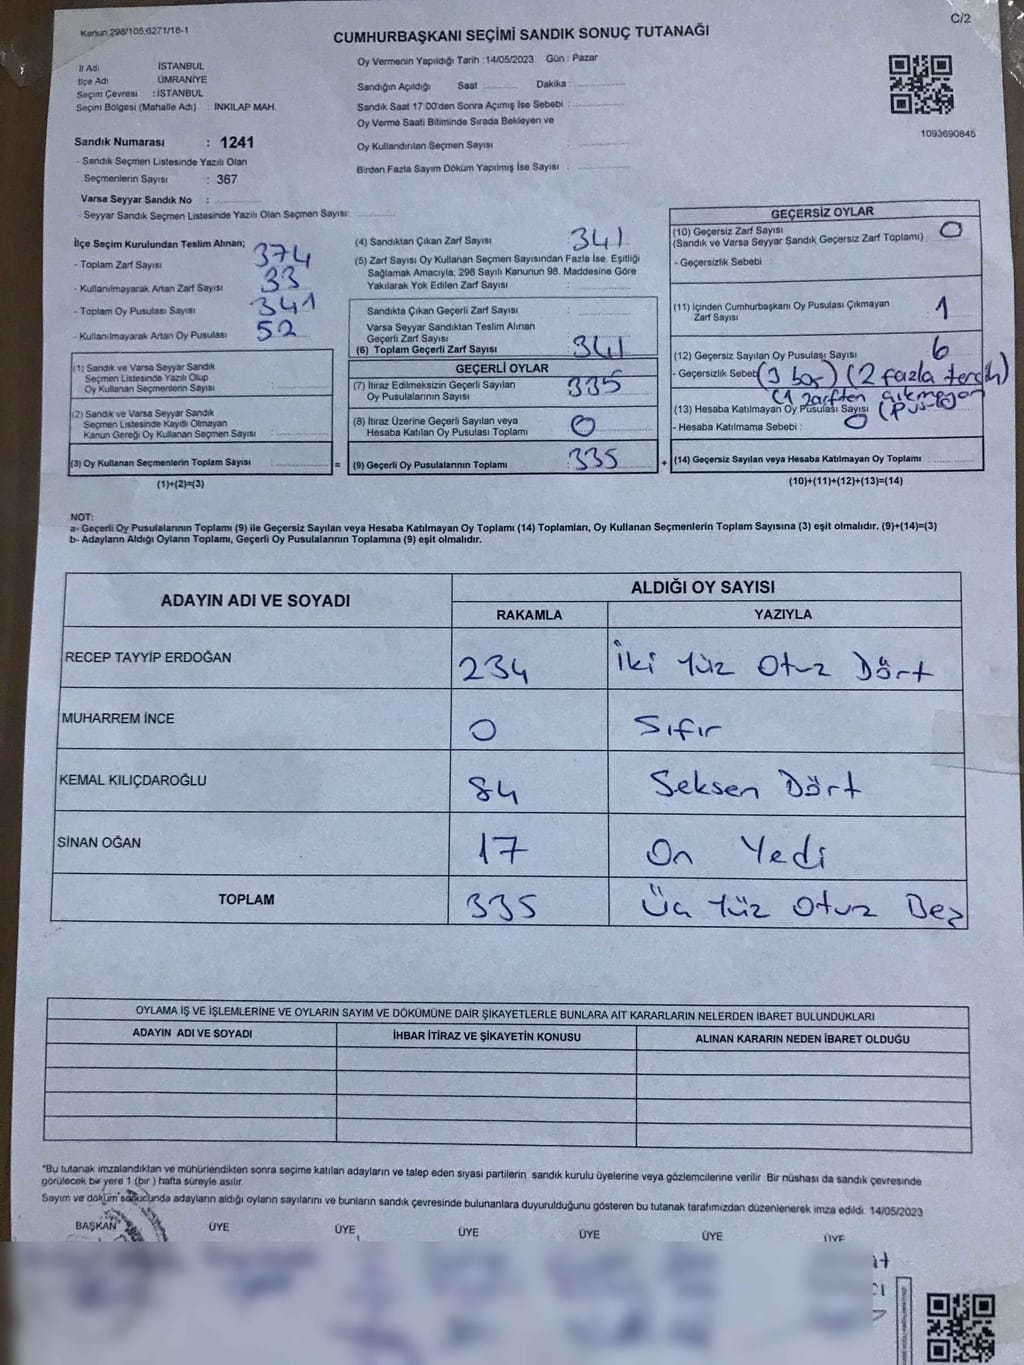 Kanun 298/105;6271/18-1
C/2
CUMHURBAŞKANI SEÇİMİ SANDIK SONUÇ TUTANAĞI
İl Adı İSTANBUL
İlçe Adı ÜMRANİYE
Seçim Çevresi : İSTANBUL
Seçim Bölgesi (Mahalle Adı) : İNKILAP MAH.
Sandık Numarası : 1241
- Sandık Seçmen Listesinde Yazılı Olan
Seçmenlerin Sayısı : 367
Varsa Seyyar Sandık No :
- Seyyar Sandık Seçmen Listesinde Yazılı Olan Seçmen Sayısı:
Oy Vermenin Yapıldığı Tarih :14/05/2023 Gün : Pazar
Sandığın Açıldığı Saat Dakika :
Sandık Saat 17:00'den Sonra Açımış İse Sebebi :
Oy Verme Saati Bitiminde Sırada Bekleyen ve
Oy Kullandırılan Seçmen Sayısı :
Birden Fazla Sayım Döküm Yapılmış İse Sayısı :
1093690845
İlçe Seçim Kurulundan Teslim Alınan;
- Toplam Zarf Sayısı 374
- Kullanılmayarak Artan Zarf Sayısı 33
- Toplam Oy Pusulası Sayısı 341
- Kullanılmayarak Artan Oy Pusulası 52
(1) Sandık ve Varsa Seyyar Sandık
Seçmen Listesinde Yazılı Olup
Oy Kullanan Seçmenlerin Sayısı :
(2) Sandık ve Varsa Seyyar Sandık
Seçmen Listesinde Kayıtlı Olmayan
Kanun Gereği Oy Kullanan Seçmen Sayısı :
(3) Oy Kullanan Seçmenlerin Toplam Sayısı : =
(1)+(2)=(3)
(4) Sandıktan Çıkan Zarf Sayısı 341
(5) Zarf Sayısı Oy Kullanan Seçmen Sayısından Fazla İse, Eşitliği
Sağlamak Amacıyla; 298 Sayılı Kanunun 98. Maddesine Göre
Yakılarak Yok Edilen Zarf Sayısı :
Sandıkta Çıkan Geçerli Zarf Sayısı :
Varsa Seyyar Sandıktan Teslim Alınan
Geçerli Zarf Sayısı :
(6) Toplam Geçerli Zarf Sayısı 341
GEÇERLİ OYLAR
(7) İtiraz Edilmeksizin Geçerli Sayılan
Oy Pusulalarının Sayısı 335
(8) İtiraz Üzerine Geçerli Sayılan veya
Hesaba Katılan Oy Pusulası Toplamı 0
(9) Geçerli Oy Pusulalarının Toplamı 335 +
GEÇERSİZ OYLAR
(10) Geçersiz Zarf Sayısı
(Sandık ve Varsa Seyyar Sandık Geçersiz Zarf Toplamı) 0
- Geçersizlik Sebebi :
(11) İçinden Cumhurbaşkanı Oy Pusulası Çıkmayan
Zarf Sayısı 1
(12) Geçersiz Sayılan Oy Pusulası Sayısı 6
- Geçersizlik Sebebi (3 boş) (2 fazla tercih)
(1 zarften çıkmayan
(13) Hesaba Katılmayan Oy Pusulası Sayısı 0 (Pusula)
- Hesaba Katılmama Sebebi :
(14) Geçersiz Sayılan veya Hesaba Katılmayan Oy Toplamı
(10)+(11)+(12)+(13)=(14)
NOT:
a- Geçerli Oy Pusulalarının Toplamı (9) ile Geçersiz Sayılan veya Hesaba Katılmayan Oy Toplamı (14) Toplamları, Oy Kullanan Seçmenlerin Toplam Sayısına (3) eşit olmalıdır. (9)+(14)=(3)
b- Adayların Aldığı Oyların Toplamı, Geçerli Oy Pusulalarının Toplamına (9) eşit olmalıdır.
ADAYIN ADI VE SOYADI
ALDIĞI OY SAYISI
RAKAMLA YAZIYLA
RECEP TAYYİP ERDOĞAN 234 İki Yüz Otuz Dört
MUHARREM İNCE 0 Sıfır
KEMAL KILIÇDAROĞLU 84 Seksen Dört
SİNAN OĞAN 17 On Yedi
TOPLAM 335 Üç Yüz Otuz Beş
OYLAMA İŞ VE İŞLEMLERİNE VE OYLARIN SAYIM VE DÖKÜMÜNE DAİR ŞİKAYETLERLE BUNLARA AİT KARARLARIN NELERDEN İBARET BULUNDUKLARI
ADAYIN ADI VE SOYADI İHBAR İTİRAZ VE ŞİKAYETİN KONUSU ALINAN KARARIN NEDEN İBARET OLDUĞU
*Bu tutanak imzalandıktan ve mühürlendikten sonra seçime katılan adayların ve talep eden siyasi partilerin sandık kurulu üyelerine veya gözlemcilerine verilir. Bir nüshası da sandık çevresinde
görülecek bir yere 1 (bir ) hafta süreyle asılır.
Sayım ve döküm sonucunda adayların aldığı oyların sayılarını ve bunların sandık çevresinde bulunanlara duyurulduğunu gösteren bu tutanak tarafımızdan düzenlenerek imza edildi. 14/05/2023
BAŞKAN ÜYE ÜYE ÜYE ÜYE ÜYE ÜYE